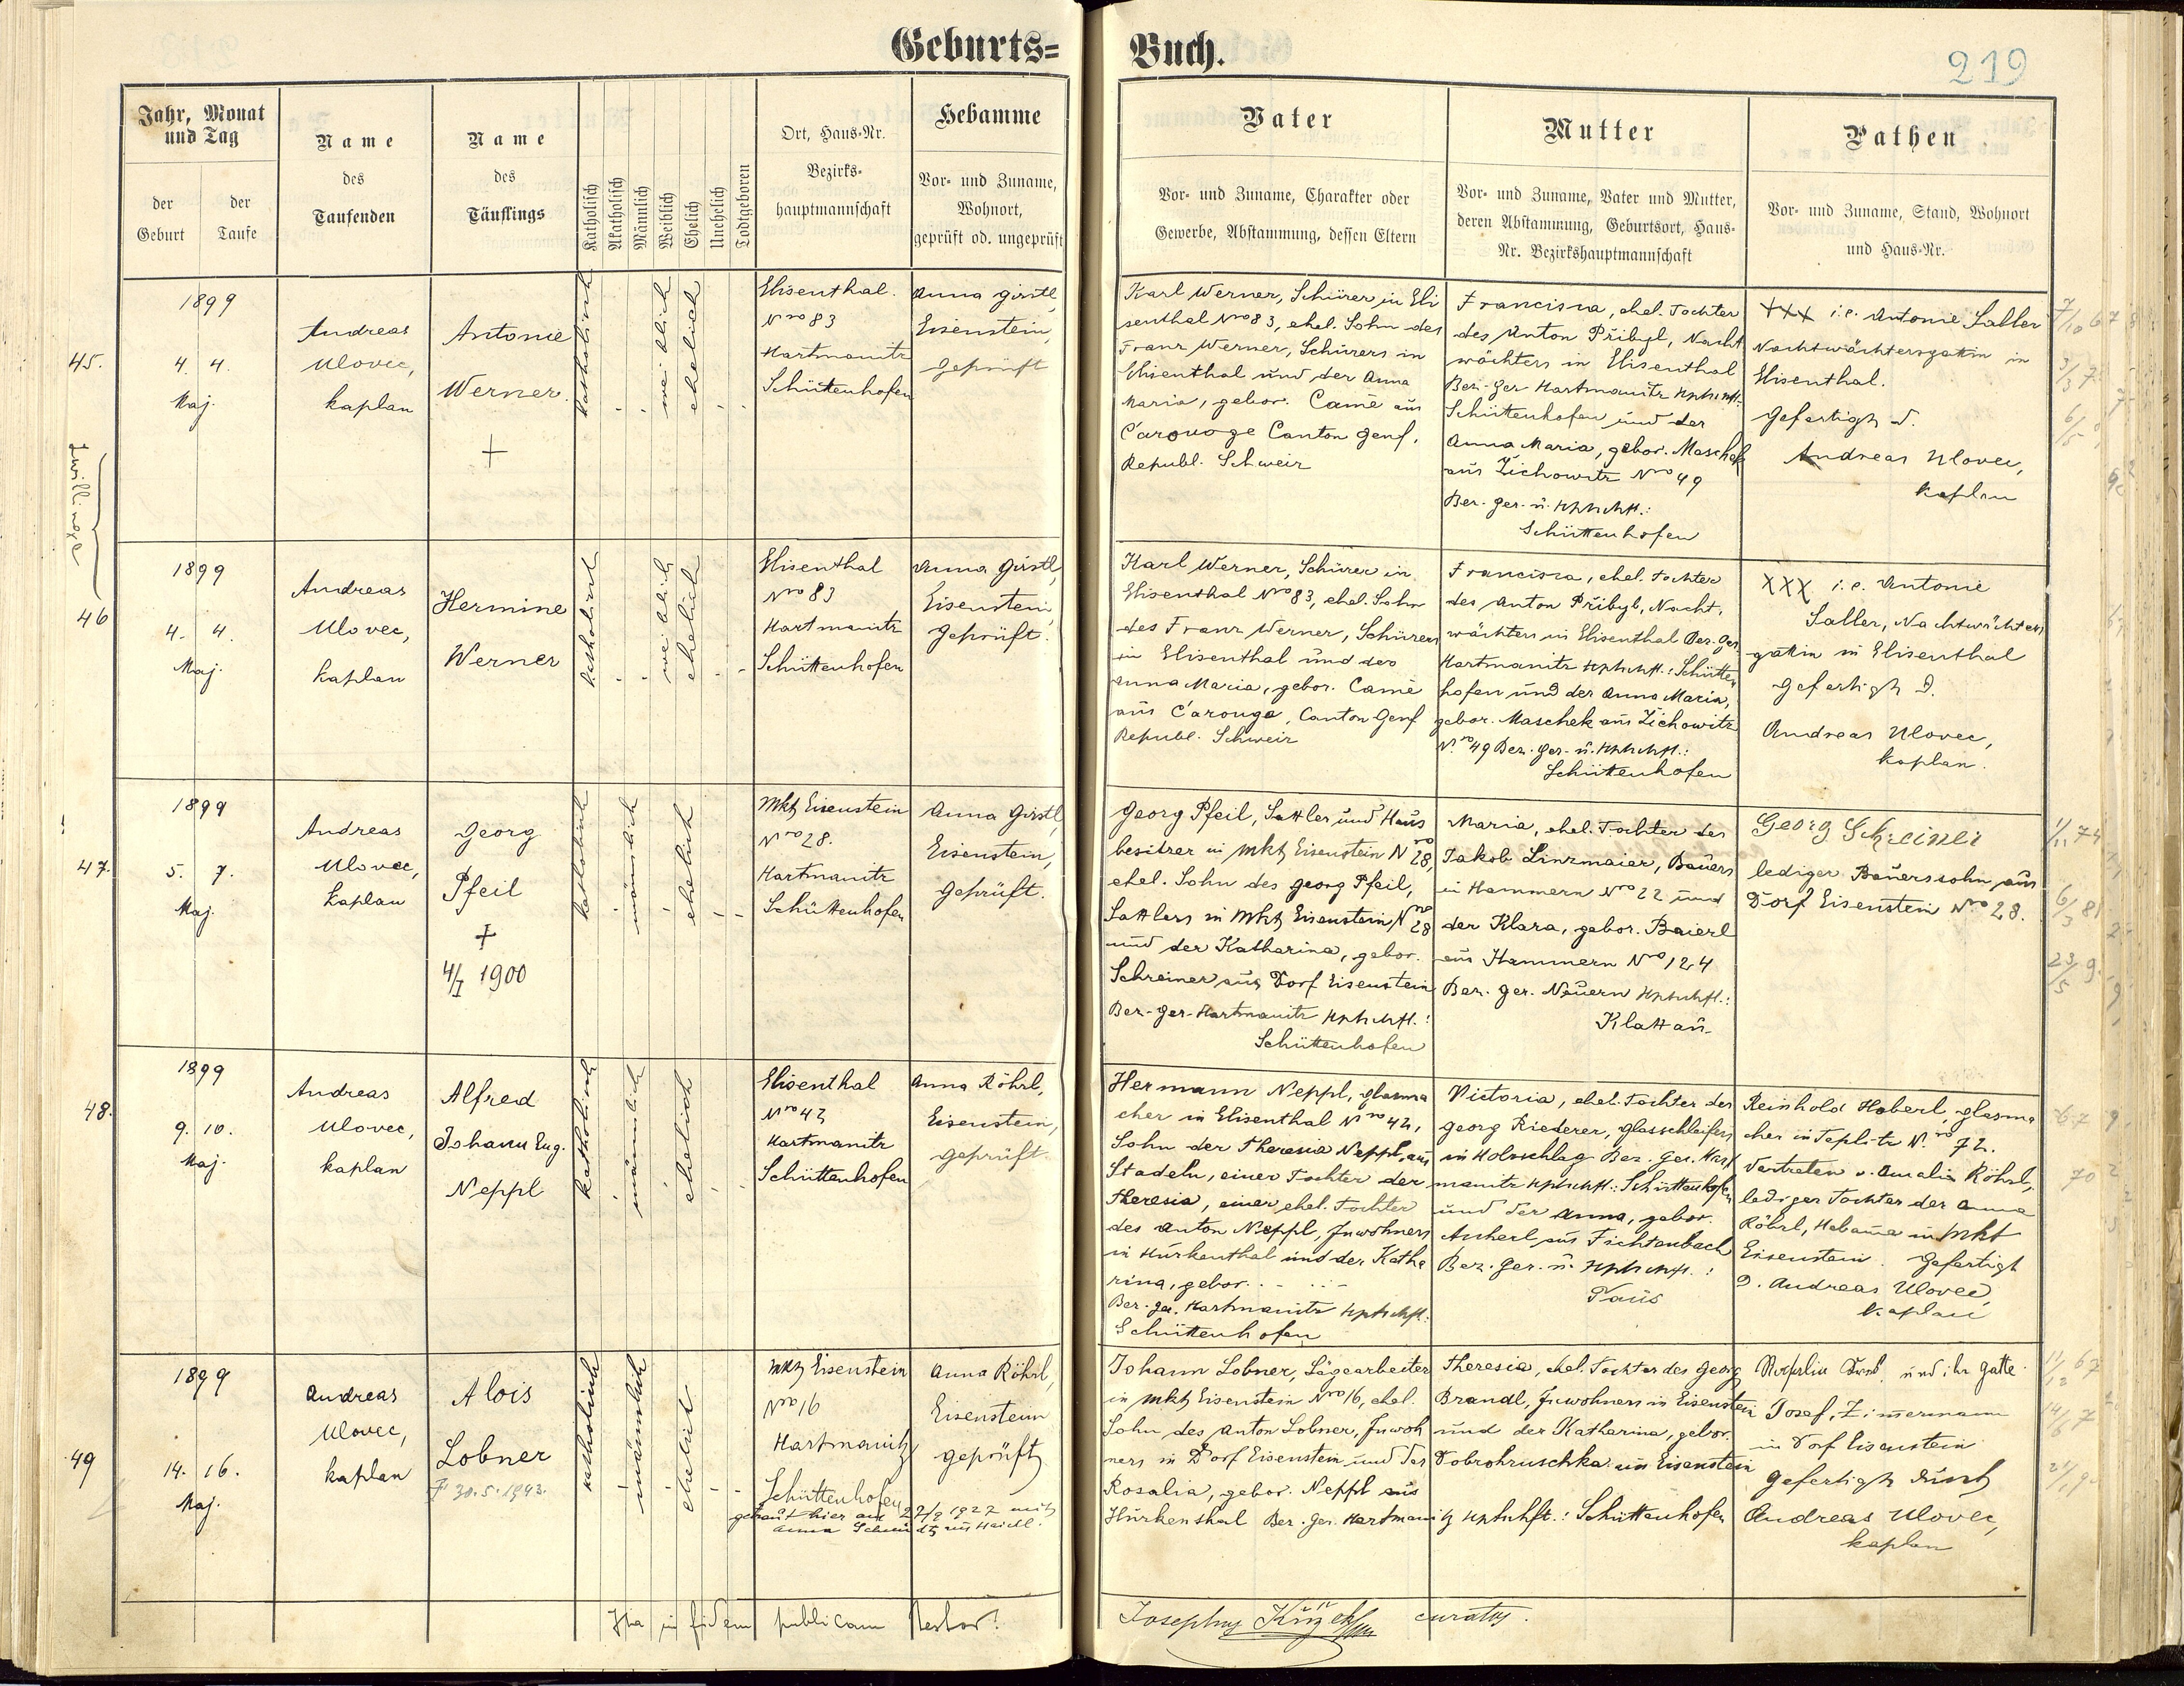 Geburts= Buch.
219
Jahr, Monat
und Tag
der
Geburt
der
Taufe
Name
des
Taufenden
Name
des
Täuflings
Katholisch
Akatholisch
Männlich
Weiblich
Ehelich
Unehelich
Todtgeboren
Ort, Haus-Nr.
Bezirks-
hauptmannschaft
Hebamme
Vor- und Zuname,
Wohnort,
geprüft od. ungeprüft
Vater
Vor- und Zuname, Charakter oder
Gewerbe, Abstammung, dessen Eltern
Mutter
Vor- und Zuname, Vater und Mutter,
deren Abstammung, Geburtsort, Haus-
Nr. Bezirkshauptmannschaft
Pathen
Vor- und Zuname, Stand, Wohnort
und Haus-Nr.
Zwillinge
45.
1899
4. 4.
Maj.
Andreas
Ulovec,
kaplan
Antonie
Werner.
+
katholisch
weiblich
ehelich
Elisenthal.
Nro 83
Hartmanitz
Schüttenhofen
Anna Girstl,
Eisenstein,
geprüft
Karl Werner, Schürer in Eli
senthal Nro 83, ehel. Sohn des
Franz Werner, Schürers in
Elisenthal und der Anna
Maria, gebor. Camè aus
Carouge Canton Genf,
Republ. Schweiz
Francisca, ehel. Tochter
des Anton Přibyl, Nacht
wächters in Elisenthal
Bez. Ger. Hartmanitz Hptschft.:
Schüttenhofen und der
Anna Maria, gebor. Maschek
aus Žichowitz Nro 49
Bez. Ger. u. Hptschft.:
Schüttenhofen
XXX i. e. Antonie Saller
Nachtwächtersgattin in
Elisenthal.
Gefertigt d.
Andreas Ulovec,
kaplan
46
1899
4. 4.
Maj.
Andreas
Ulovec,
kaplan
Hermine
Werner
katholisch
weiblich
ehelich
Elisenthal
Nro 83
Hartmanitz
Schüttenhofen
Anna Girstl,
Eisenstein,
geprüft.
Karl Werner, Schürer in
Elisenthal Nro 83, ehel. Sohn
des Franz Werner, Schürers
in Elisenthal und der
Anna Maria, gebor. Camè
aus Carouge, Canton Genf
Republ. Schweiz
Francisca, ehel. Tochter
des Anton Přibyl, Nacht,
wächters in Elisenthal Bez. Ger.
Hartmanitz Hptschft.: Schütten
hofen und der Anna Maria,
gebor. Maschek aus Žichowitz
N.ro 49 Bez. Ger. u. Hptschft.:
Schüttenhofen
XXX i. e. Antonie
Saller, Nachtwächters
gattin in Elisenthal
Gefertigt d.
Andreas Ulovec,
kaplan.
47.
1899
5. 7.
Maj.
Andreas
Ulovec,
kaplan
Georg
Pfeil
+
4/I 1900
katholisch
männlich
ehelich
Mkt Eisenstein
Nro 28.
Hartmanitz
Schüttenhofen
Anna Girstl,
Eisenstein,
geprüft.
Georg Pfeil, Sattler und Haus
besitzer in Mkt Eisenstein Nro 28,
ehel. Sohn des Georg Pfeil,
Sattlers in Mkt Eisenstein Nro 28
und der Katharina, gebor.
Schreiner aus Dorf Eisenstein
Bez. Ger. Hartmanitz Hptschft.:
Schüttenhofen
Maria, ehel. Tochter des
Jakob Linzmaier, Bauers
in Hammern Nro 22 und
der Klara, gebor. Baierl
aus Hammern Nro 124
Bez. Ger. Neuern Hptschft.:
Klattau.
Georg Schreiner
lediger Bauerssohn aus
Dorf Eisenstein Nro 28.
48.
1899
9. 10.
Maj.
Andreas
Ulovec,
kaplan
Alfred
Johann Eug.
Neppl
katholisch
männlich
ehelich
Elisenthal
Nro 42
Hartmanitz
Schüttenhofen
Anna Röhrl,
Eisenstein,
geprüft.
Hermann Neppl, Glasma
cher in Elisenthal Nro 42,
Sohn der Theresia Neppl, aus
Stadeln, einer Tochter der
Theresia, einer ehel. Tochter
des Anton Neppl, Inwohners
in Hurkenthal und der Katha
rina, gebor. . .
Bez. Ger. Hartmanitz Hptschft.
Schüttenhofen
Victoria, ehel. Tochter des
Georg Riederer, Glasschleifers
in Holzschlag Bez. Ger. Hart
manitz Hptschft.: Schüttenhofen
und der Anna, gebor.
Ascherl aus Fichtenbach
Bez. Ger. u. Hptschft.:
Taus
Reinhold Haberl, Glasma
cher in Teplitz N.ro 72.
Vertreten v. Amalia Röhrl,
lediger Tochter der Anna
Röhrl, Hebama in Mkt
Eisenstein. Gefertigt
d. Andreas Ulovec
kaplan
49
1899
14. 16.
Maj.
Andreas
Ulovec,
kaplan
Alois
Lobner
30.5.1943.
katholisch
männlich
ehelich
Mkt Eisenstein
Nro 16
Hartmanitz
Schüttenhofen
getraut hier am 27/2 1922 mit
Anna Schmidt aus Haidl.
Anna Röhrl,
Eisenstein
geprüft
Johann Lobner, Sägearbeiter
in Mkt Eisenstein Nro 16, ehel.
Sohn des Anton Lobner, Inwoh
ners in Dorf Eisenstein und der
Rosalia, gebor. Neppl aus
Hurkenthal Bez. Ger. Hartmanitz Hptschft.: Schüttenhofen
Theresia, ehel. Tochter des Georg
Brandl, Inwohners in Eisenstein
und der Katharina, gebor.
Dobrohruschka aus Eisenstein
und ihr Gatte
Josef, Zimmermann
in Dorf Eisenstein
Gefertigt durch
Andreas Ulovec,
kaplan
Ita in fidem publicam testor:
Josephus curatus.